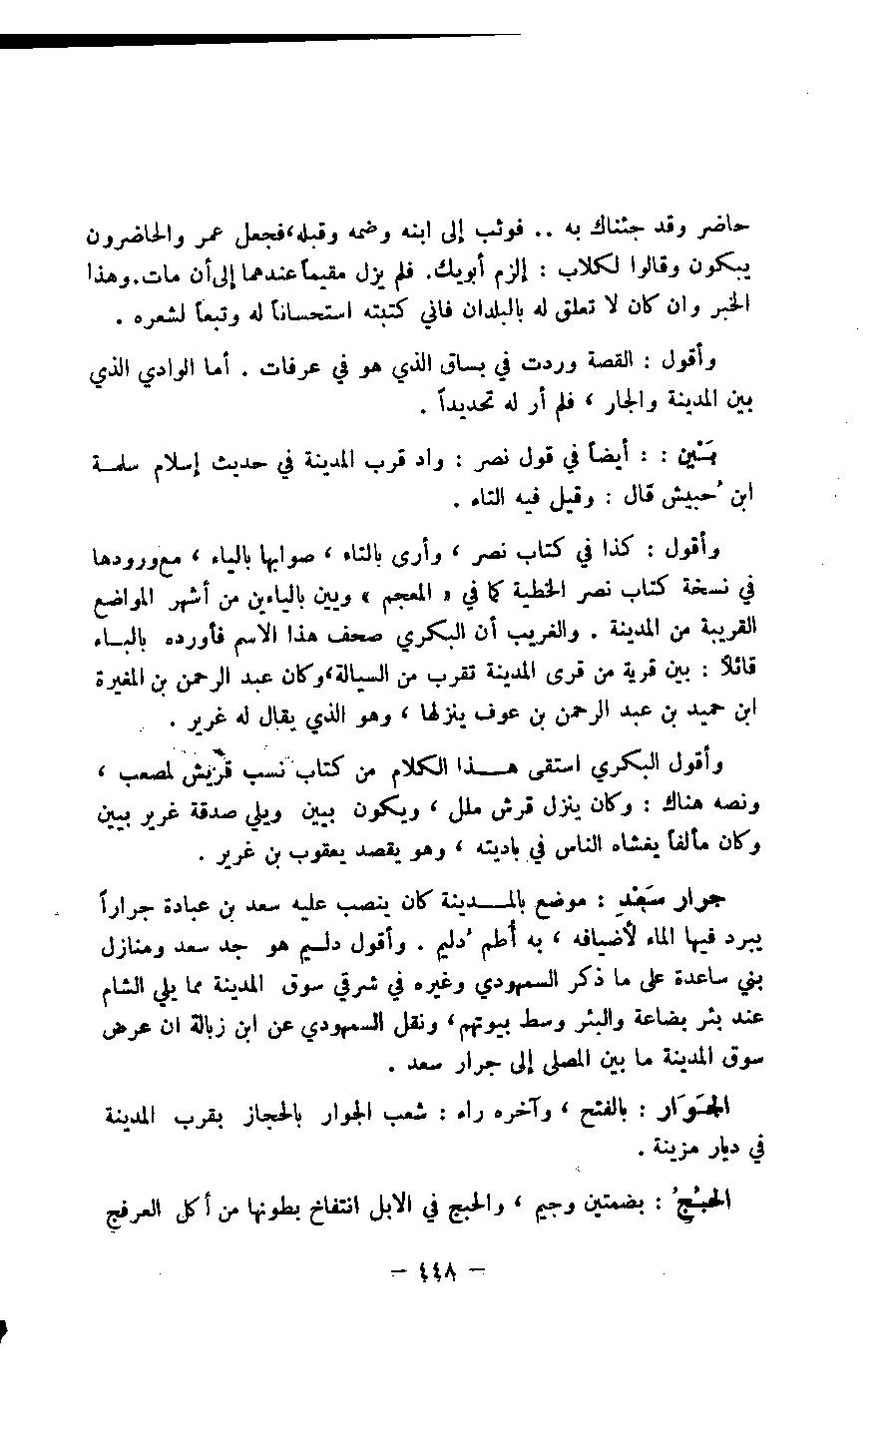 حاضر وقد جئناك به .. فوثب إلى ابنه وضمه وقبله،فجعل عمر والحاضرون
يبكون وقالوا لكلاب : إلزم أبويك. فلم يزل مقيماً عندهما إلى أن مات.وهذا
الخبر وان كان لا تعلق له بالبلدان فاني كتبته استحساناً له وتبعاً لشعره .
وأقول : القصة وردت في بساق الذي هو في عرفات . أما الوادي الذي
بين المدينة والجار ، فلم أر له تحديداً .
: : أيضاً في قول نصر : واد قرب المدينة في حديث إسلام سلمة
ابن حُبيش قال : وقيل فيه التاء .
وأقول : كذا في كتاب نصر ، وأرى بالتاء ، صوابها بالياء ، مع ورودها
في نسخة كتاب نصر الخطية كما في « المعجم » ويين بالياءين من أشهر المواضع
القريبة من المدينة . والغريب أن البكري صحف هذا الاسم فأورده بالبـاء
قائلاً : بين قرية من قرى المدينة تقرب من السيالة،وكان عبد الرحمن بن المغيرة
ابن حميد بن عبد الرحمن بن عوف ينزلها ، وهو الذي يقال له غرير .
وأقول البكري استقى هـذا الكلام من كتاب نسب قريش لمصعب ،
ونصه هناك : وكان ينزل قرش ملل ، ويكون ببين ويلي صدقة غرير ببين
وكان مألفاً يغشاه الناس في باديته ، وهو يقصد يعقوب بن غرير .
جرار سَعْدٍ : موضع بالمـدينة كان ينصب عليه سعد بن عبادة جراراً
يبرد فيها الماء لأضيافه ، به أُطم دُليم . وأقول دلـيم هو جد سعد ومنازل
بني ساعدة على ما ذكر السمهودي وغيره في شرقي سوق المدينة مما يلي الشام
عند بئر بضاعة والبئر وسط بيوتهم، ونقل السمهودي عن ابن زبالة ان عرض
سوق المدينة ما بين المصلى إلى جرار سعد .
الجَوَار : بالفتح ، وآخره راء : شعب الجوار بالحجاز بقرب المدينة
في ديار مزينة .
الحُبُج : بضمتين وجيم ، والحبج في الابل انتفاخ بطونها من أكل العرفج
— ٤٤٨ —